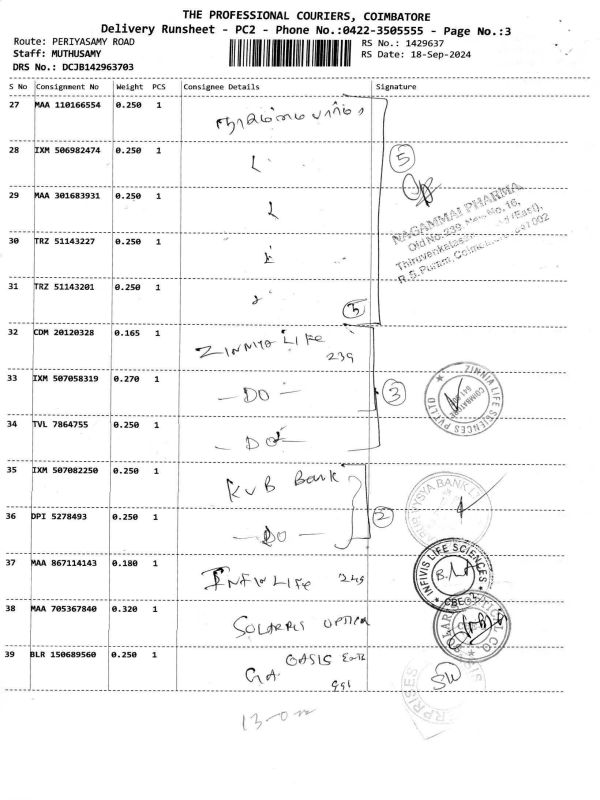 THE PROFESSIONAL COURIERS, COIMBATORE
Delivery Runsheet - PC2 - Phone No.:0422-3505555 - Page No.:3
Route: PERIYASAMY ROAD RS No.: 1429637
Staff: MUTHUSAMY RS Date: 18-Sep-2024
DRS No.: DCJB142963703
S No Consignment No Weight PCS Consignee Details Signature
27 MAA 110166554 0.250 1
28 IXM 506982474 0.250 1
5
29 MAA 301683931 0.250 1
NAGAMMAI PHARMA
Old No. 239, New No. 16,
30 TRZ 51143227 0.250 1
R.S. Puram, Coimbatore
31 TRZ 51143201 0.250 1
5
32 CDM 20120328 0.165 1 ZINNIA LIFE
239
33 IXM 507058319 0.270 1 - DO -
3
ZINNIA LIFE SCIENCES PVT LTD
COIMBATORE
34 TVL 7864755 0.250 1 - DO -
35 IXM 507082250 0.250 1 KVB Bank
VYSYA BANK
36 DPI 5278493 0.250 1 - DO -
2
37 MAA 867114143 0.180 1 INFIV LIFE
INFIVIS LIFE SCIENCES
CBE
38 MAA 705367840 0.320 1 SOLARIS OPTICA
39 BLR 150689560 0.250 1 OASIS
GA
991
SW
13-0